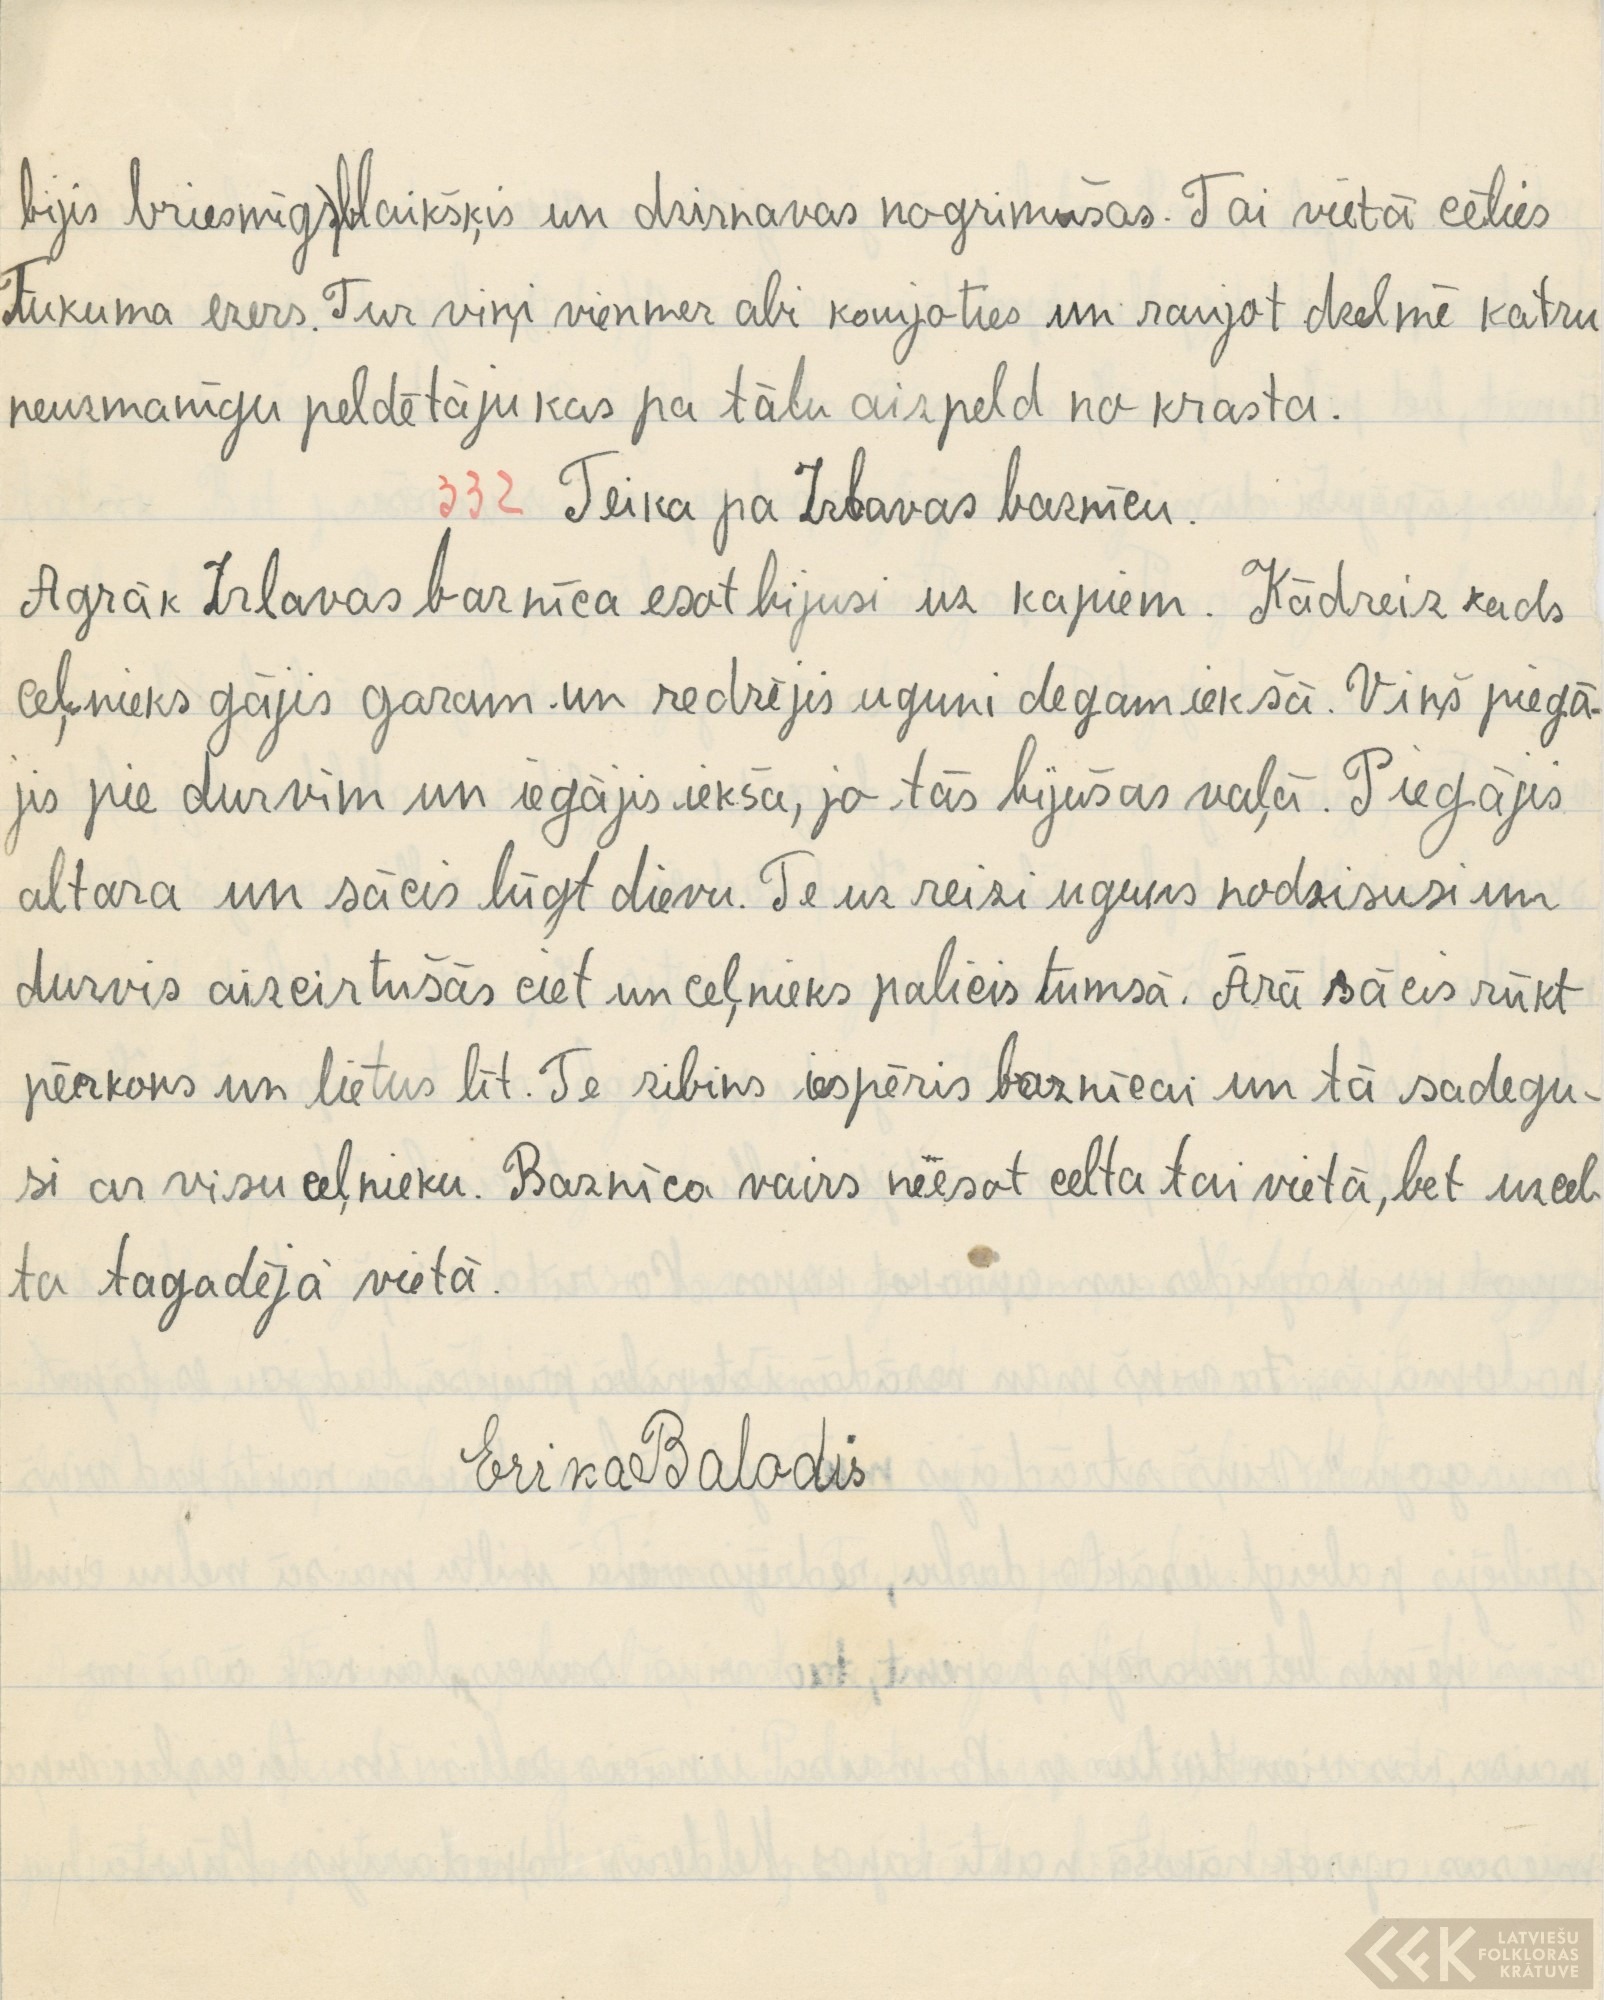 bijis briesmīgs blaikšķis un dzirnavas nogrimušas. Tai vietā cēlies
Tukuma ezers. Tur viņi vienmer abi kaujoties un raujot dzelmē katru
neuzmanīgu peldētāju kas pa tālu aizpeld no krasta.
332 Teika pa Irlavas baznīcu.
Agrāk Irlavas baznīca esot bijusi uz kapiem. Kādreiz kads
ceļnieks gājis garam un redzējis uguni degam iekšā. Viņš piegā-
jis pie durvīm un iegājis iekšā, jo tās bijušas vaļā. Piegājis
altara un sācis lūgt dievu. Te uz reizi uguns nodzisusi un
durvis aizcirtušās ciet un ceļnieks palicis tumsā. Ārā sācis rūkt
pērkons un lietus līt. Te zibins iespēris baznīcai un tā sadegu-
si ar visu ceļnieku. Baznīca vairs neesot celta tai vietā, bet uzcel-
ta tagadējā vietā.
Erika Balodis
LATVIEŠU
FOLKLORAS
KRĀTUVE